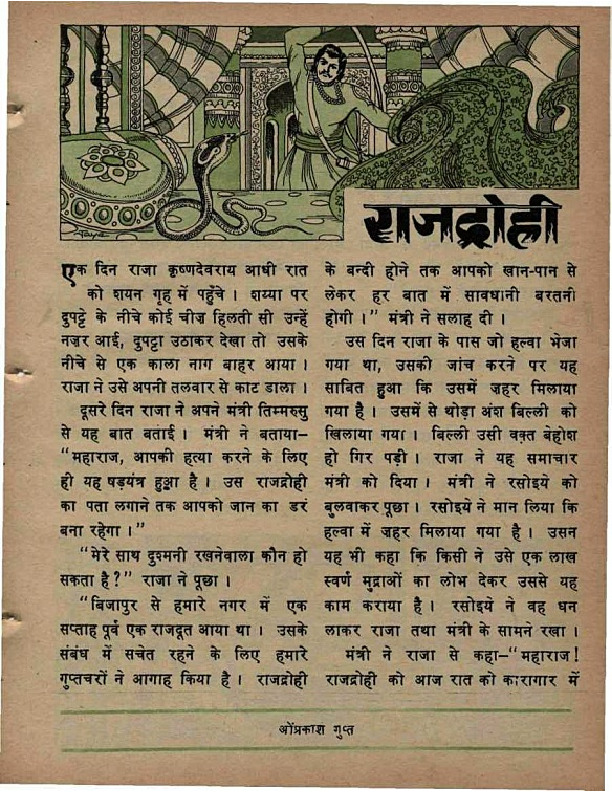 राजद्रोही
एक दिन राजा कृष्णदेवराय आधी रात
को शयन गृह में पहुँचे । शय्या पर
दुपट्टे के नीचे कोई चीज़ हिलती सी उन्हें
नज़र आई, दुपट्टा उठाकर देखा तो उसके
नीचे से एक काला नाग बाहर आया ।
राजा ने उसे अपनी तलवार से काट डाला ।
दूसरे दिन राजा ने अपने मंत्री तिम्मरुसु
से यह बात बताई । मंत्री ने बताया–
“महाराज, आपकी हत्या करने के लिए
ही यह षड़यंत्र हुआ है । उस राजद्रोही
का पता लगाने तक आपको जान का डर
बना रहेगा ।”
“मेरे साथ दुश्मनी रखनेवाला कौन हो
सकता है?” राजा ने पूछा ।
“बिजापुर से हमारे नगर में एक
सप्ताह पूर्व एक राजदूत आया था । उसके
संबंध में सचेत रहने के लिए हमारे
गुप्तचरों ने आगाह किया है । राजद्रोही
के बन्दी होने तक आपको खान-पान से
लेकर हर बात में सावधानी बरतनी
होगी ।” मंत्री ने सलाह दी ।
उस दिन राजा के पास जो हल्वा भेजा
गया था, उसकी जांच करने पर यह
साबित हुआ कि उसमें ज़हर मिलाया
गया है । उसमें से थोड़ा अंश बिल्ली को
खिलाया गया । बिल्ली उसी वक़्त बेहोश
हो गिर पड़ी । राजा ने यह समाचार
मंत्री को दिया । मंत्री ने रसोइये को
बुलवाकर पूछा । रसोइये ने मान लिया कि
हल्वा में ज़हर मिलाया गया है । उसन
यह भी कहा कि किसी ने उसे एक लाख
स्वर्ण मुद्राओं का लोभ देकर उससे यह
काम कराया है । रसोइये ने वह धन
लाकर राजा तथा मंत्री के सामने रखा ।
मंत्री ने राजा से कहा–“महाराज!
राजद्रोही को आज रात को कारागार में
ओंप्रकाश गुप्त